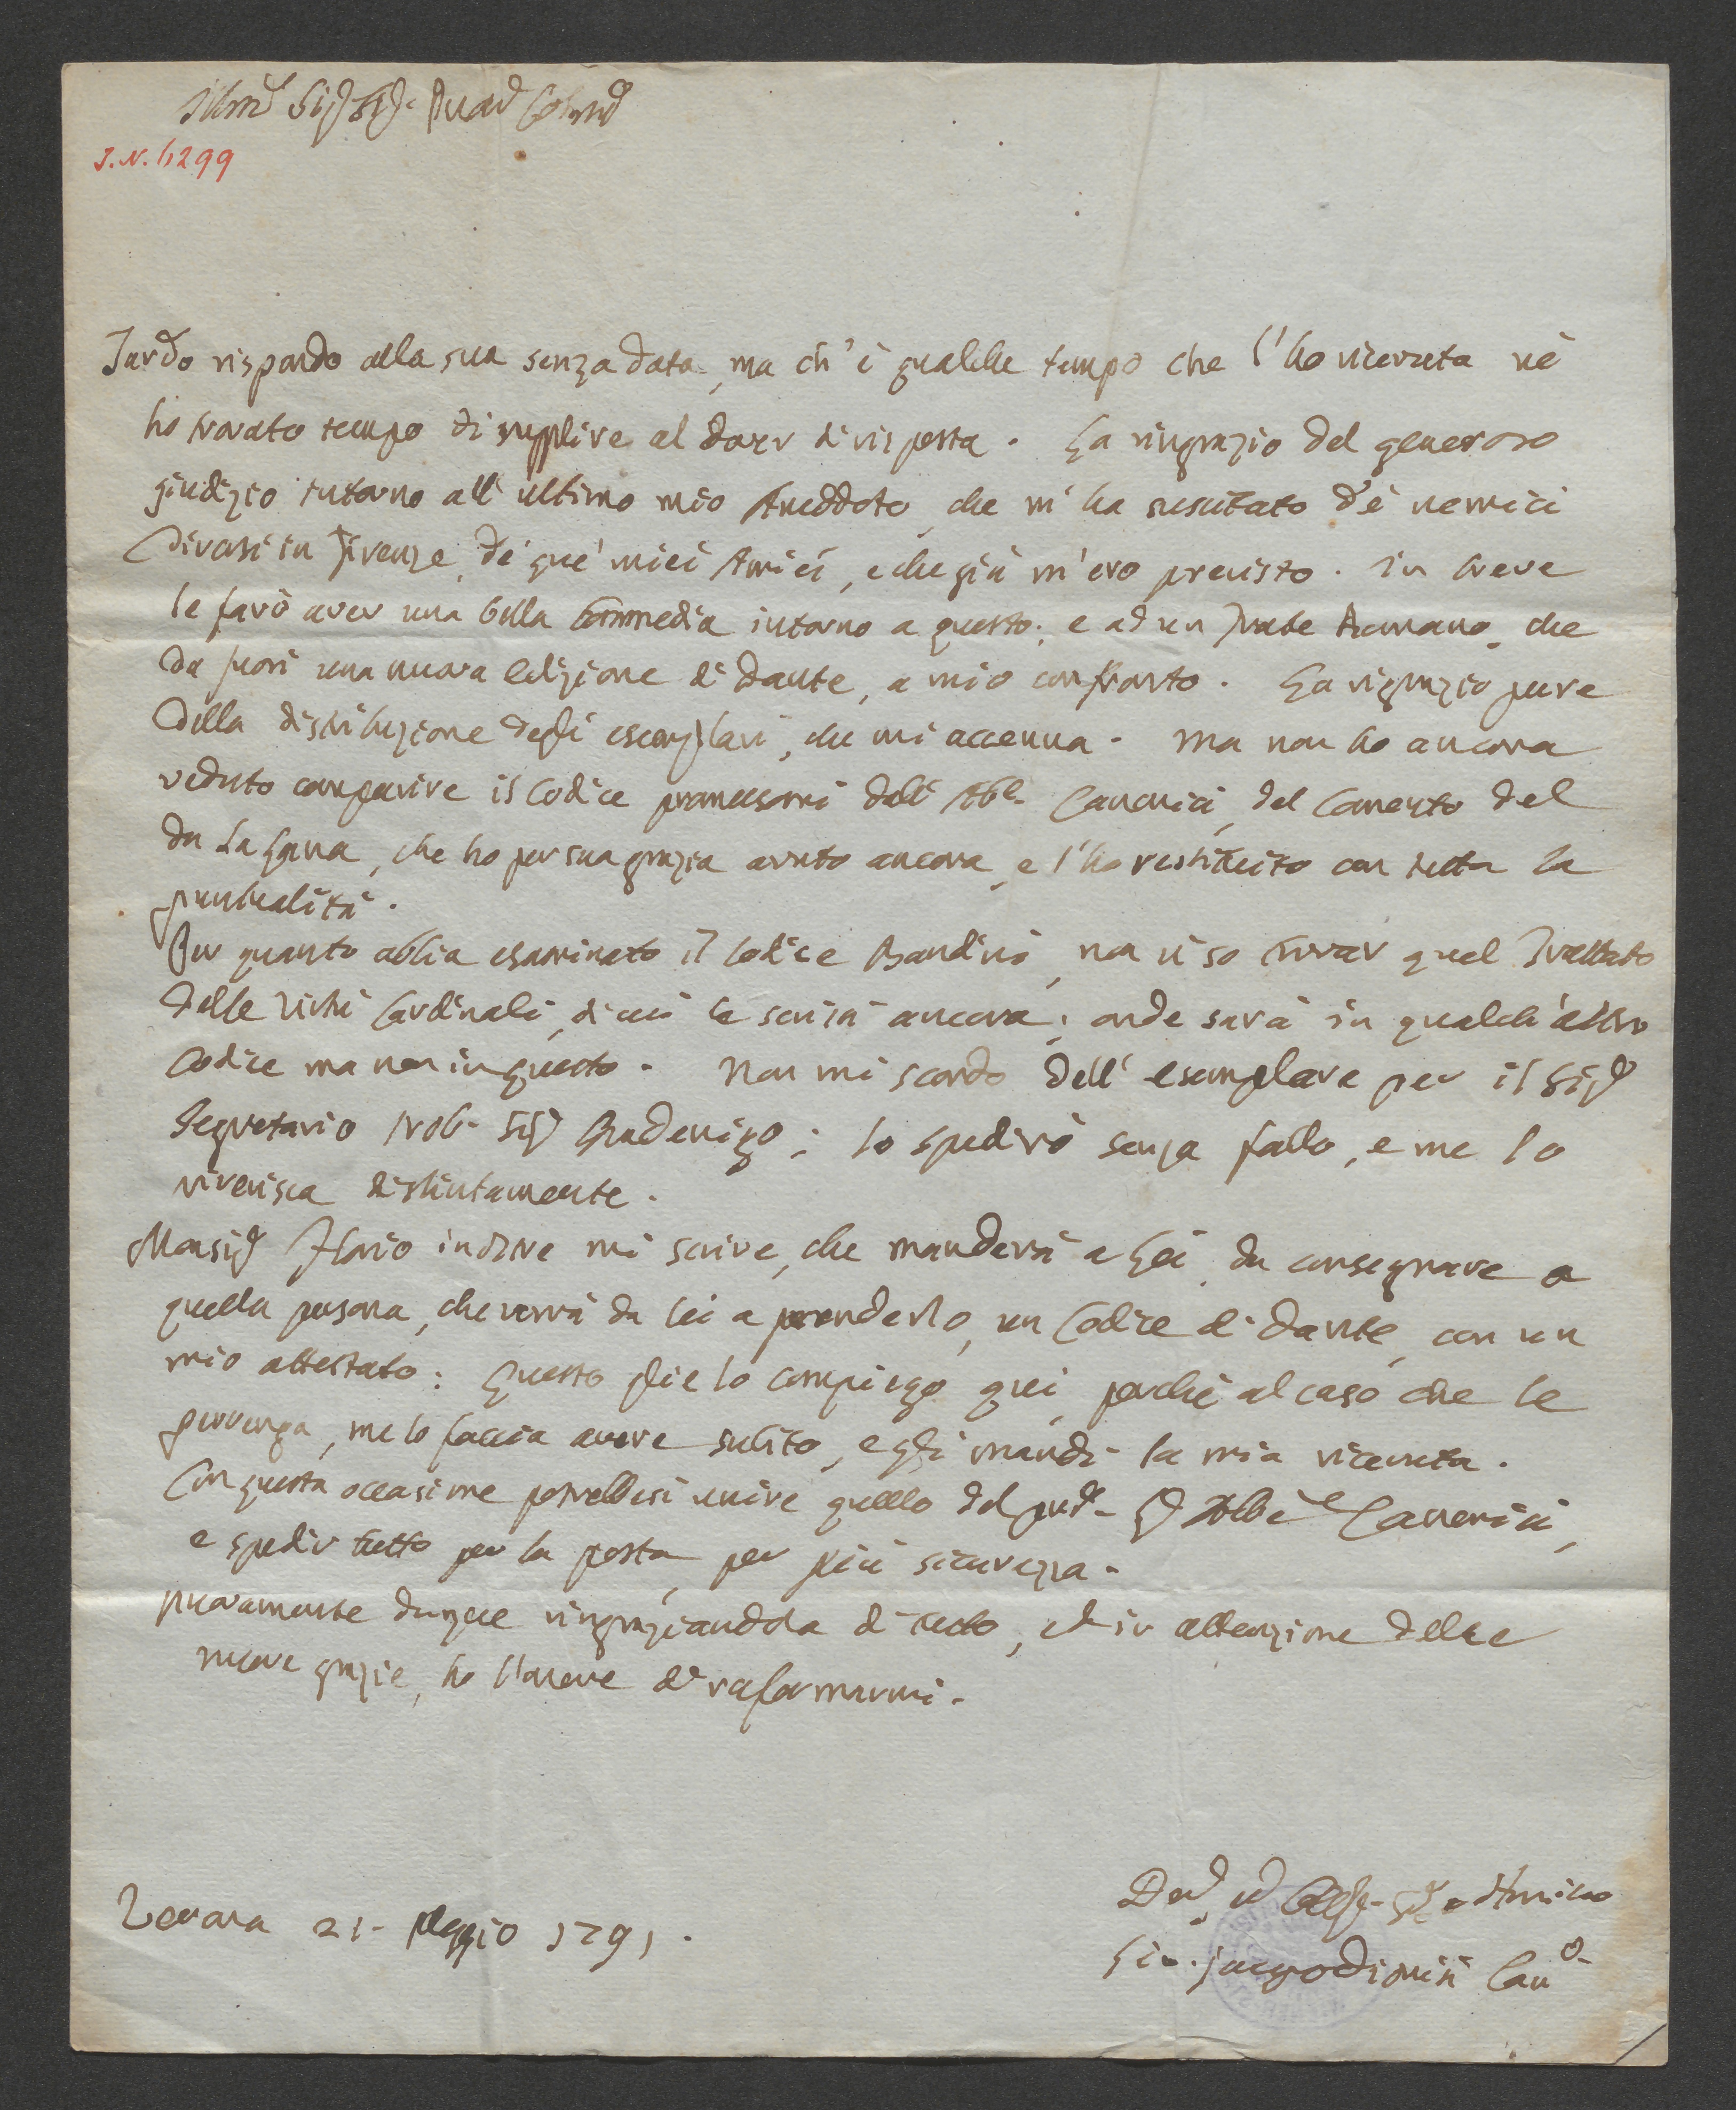 Illmo Sigr Sigr Pron Colmo
I.N. 61299
Tardo rispondo alla sua senza data, ma ch'è qualche tempo che l'ho ricevuta nè
ho trovato tempo di supplire al dover di risposta. La ringrazio del generoso
giudizio intorno all'ultimo mio Aneddoto, che m'ha suscitato de' nemici
diversi in Firenze, de' que' miei Amici, e che già m'ero previsto. In breve
le farò aver una bella Commedia intorno a questo; e ad un Frate Romano, che
da fuori una nuova edizione di Dante, a mio confronto. La ringrazio pure
della distribuzione degli esemplari, che mi accenna. Ma non ho ancora
veduto comparire il Codice promessomi dall' Abe. Canonici, del Comento del
da La Lana, che ho per sua grazia avuto ancora, e l'ho restituito con tutta la
puntualità.
Per quanto abbia esaminato il Codice Bandini, non vi so trovar quel Trattato
delle Virtù Cardinali, di cui le scrissi ancora; onde sarà in qualch'altro
Codice ma non in questo. Non mi scordo dell' esemplare per il Sigr
Segretario Nob. Sigr Gradenigo; lo spedirò senza fallo, e me lo
riverisca distintamente.
Monsigr Florio indire mi scrive, che manderà a Lei, da consegnare a
quella persona, che verrà da lei a prenderlo, un Codice di Dante, con un
mio attestato: Questo glie lo compiego qui, perchè al caso che le
pervenga, me lo faccia avere subito, e gli mandi la mia ricevuta.
Con questa occasione potrebbesi unire quello del pred. Sr Abbe Canonici,
e spedir tutto per la posta, per più sicurezza.
Nuovamente dunque ringraziandola di tutto, ed in attenzione delle
nuove grazie, ho l'onore di rafermarmi.
Verona 21. Maggio 1791.
Devo ed Obblo Sr ed Amico
Gio. Jacopo Dionisi Cano.